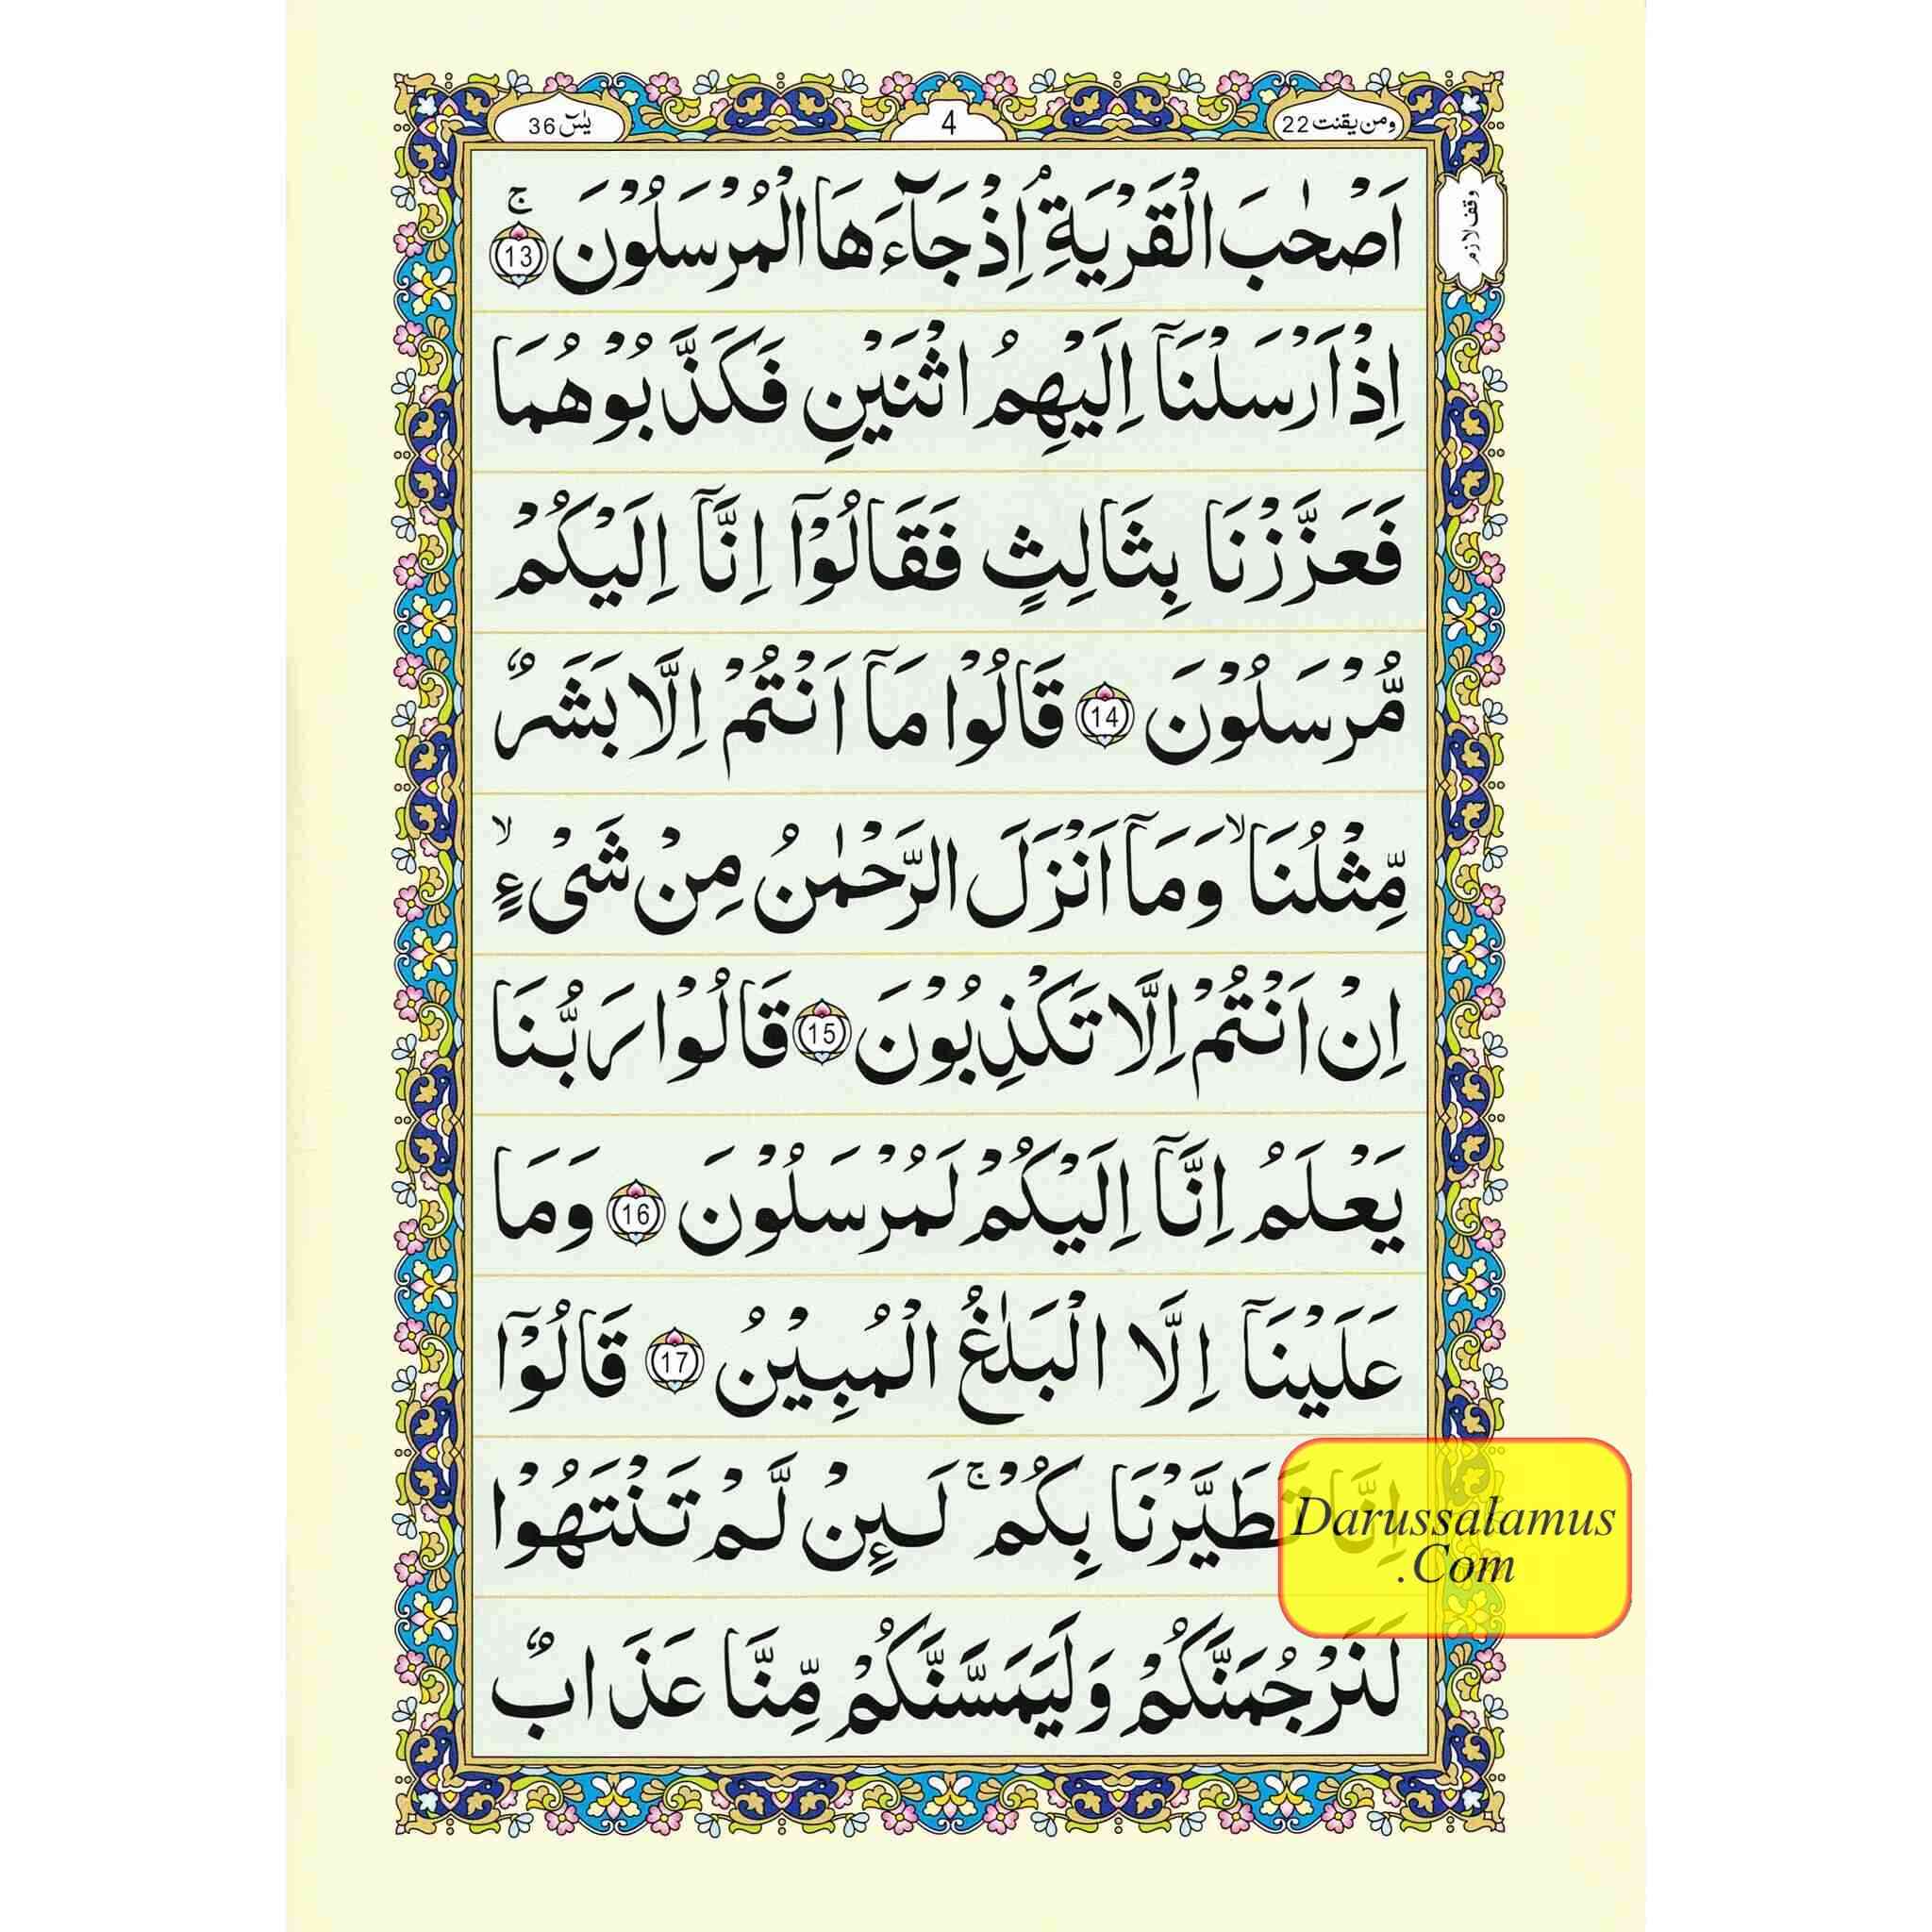 يٰسٓ 36
4
ومن يقنت 22
وقف لازم
اَصْحٰبَ الْقَرْيَةِ ۘ اِذْ جَآءَهَا الْمُرْسَلُوْنَ ۚ 13
اِذْ اَرْسَلْنَآ اِلَيْهِمُ اثْنَيْنِ فَكَذَّبُوْهُمَا
فَعَزَّزْنَا بِثَالِثٍ فَقَالُوْٓا اِنَّآ اِلَيْكُمْ
مُّرْسَلُوْنَ 14 قَالُوْا مَآ اَنْتُمْ اِلَّا بَشَرٌ
مِّثْلُنَا ۙ وَمَآ اَنْزَلَ الرَّحْمٰنُ مِنْ شَیْءٍ ۙ
اِنْ اَنْتُمْ اِلَّا تَكْذِبُوْنَ 15 قَالُوْا رَبُّنَا
يَعْلَمُ اِنَّآ اِلَيْكُمْ لَمُرْسَلُوْنَ 16 وَمَا
عَلَيْنَآ اِلَّا الْبَلٰغُ الْمُبِيْنُ 17 قَالُوْٓا
اِنَّا تَطَيَّرْنَا بِكُمْ ۚ لَئِنْ لَّمْ تَنْتَهُوْا
لَنَرْجُمَنَّكُمْ وَلَيَمَسَّنَّكُمْ مِّنَّا عَذَابٌ
Darussalamus
.Com